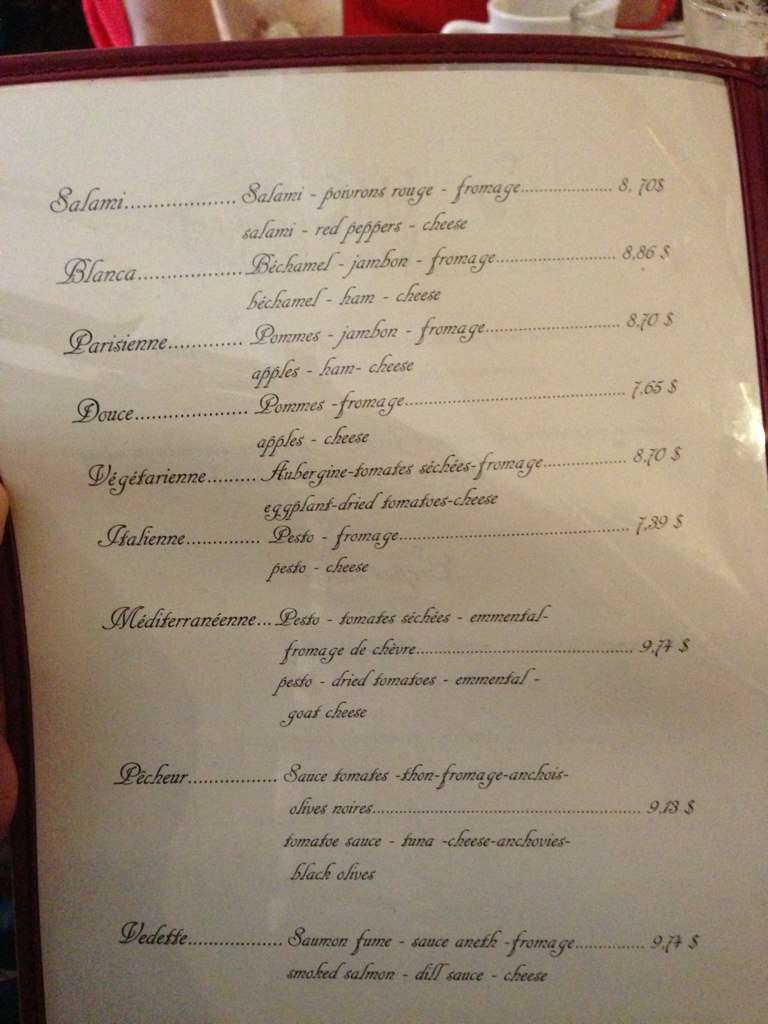 Salami.................... Salami - poivrons rouge - fromage.................. 8, 70$
salami - red peppers - cheese
Blanca................... Béchamel - jambon - fromage........................ 8,86 $
béchamel - ham - cheese
Parisienne............. Pommes - jambon - fromage........................... 8,70 $
apples - ham- cheese
Douce.................... Pommes -fromage............................................. 7,65 $
apples - cheese
Végétarienne......... Aubergine-tomates séchées-fromage................. 8,70 $
eggplant-dried tomatoes-cheese
Italienne.............. Pesto - fromage.............................................. 7,39 $
pesto - cheese
Méditerranéenne... Pesto - tomates séchées - emmental-
fromage de chèvre........................................... 9,74 $
pesto - dried tomatoes - emmental -
goat cheese
Pêcheur................. Sauce tomates -thon-fromage-anchois-
olives noires..................................................... 9,13 $
tomatoe sauce - tuna -cheese-anchovies-
black olives
Vedette.................. Saumon fume - sauce aneth -fromage.............. 9,74 $
smoked salmon - dill sauce - cheese